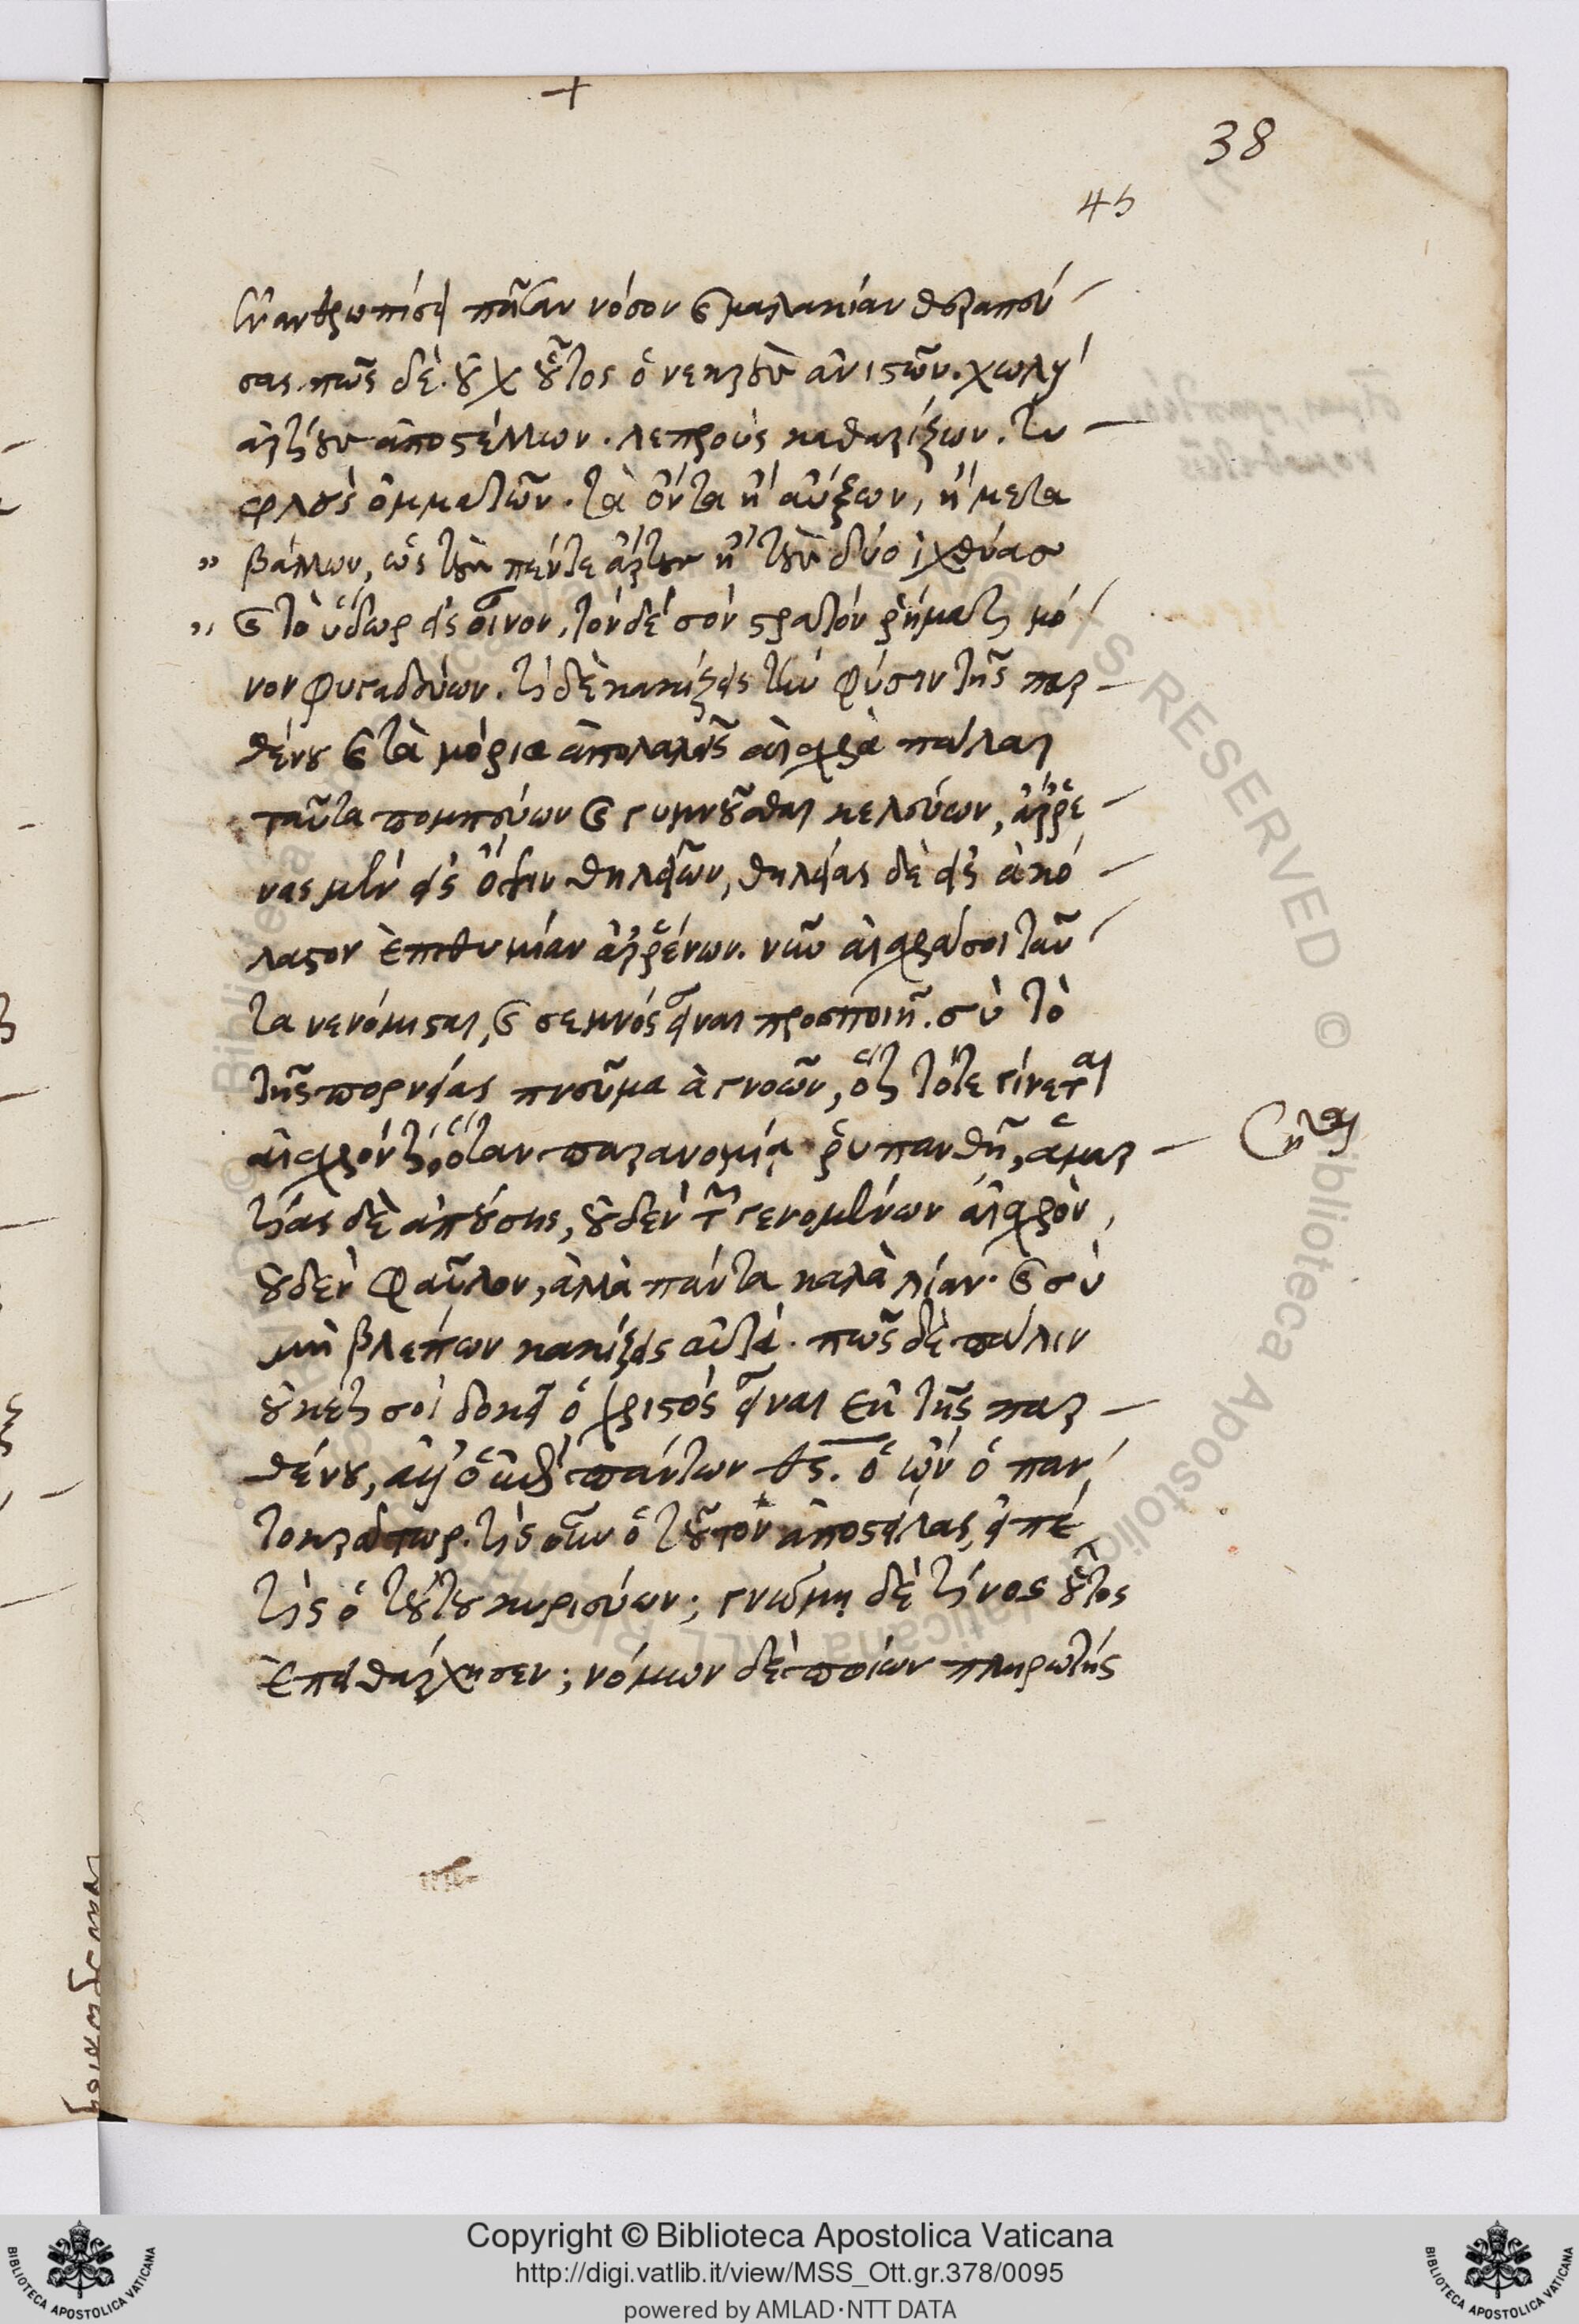 38
45
ἐν ἀνθρωπίσει πᾶσαν νόσον καὶ μαλακίαν θεραπεύ
σας. πῶς δὲ οὐχ οὗτος ὁ νεκροὺς ἀνιστῶν. χωλοὺς
ἀρτίους ἀποστέλλων. λεπροὺς καθαρίζων. τυ
φλοὺς ὀμματῶν. τὰ ὄντα ἢ αὔξων, ἢ μετα
" βάλλων, ὡς τοὺς πέντε ἄρτους ἢ τοὺς δύο ἰχθύας
" καὶ τὸ ὕδωρ εἰς οἶνον, τὸν δὲ σὸν στρατὸν ῥήματι μό
νον φυγαδεύων. τί δὲ κακίζεις τὴν φύσιν τῆς παρ
θένου καὶ τὰ μόρια ἀποκαλεῖς αἰσχρὰ πάλαι
ταῦτα πομπεύων καὶ γυμνοῦσθαι κελεύων, ἄρρε
νας μὲν εἰς ὄψιν θηλειῶν, θηλείας δὲ εἰς ἀκό
λαστον ἐπιθυμίαν ἀρρένων. νῦν αἰσχρά σοι ταῦ
τα νενόμισται, καὶ σεμνὸς εἶναι προσποιῇ. σὺ τὸ
τῆς πορνείας πνεῦμα ἀγνοῶν, ὅτι τότε γίνεται
αἰσχρόν τι, ὅταν παρανομίᾳ ῥυπανθῇ, ἁμαρ
τίας δὲ ἀπούσης, οὐδὲν τῶν γενομένων αἰσχρὸν,
οὐδὲν φαῦλον, ἀλλὰ πάντα καλὰ λίαν. καὶ σὺ
μὴ βλέπων κακίζεις αὐτά. πῶς δὲ πάλιν
οὐκέτι σοι δοκεῖ ὁ χριστὸς εἶναι ἐκ τῆς παρ
θένου, ἀλλ' ὁ ἐπὶ πάντων θς. ὁ ὢν ὁ παν
τοκράτωρ. τίς οὖν ὁ τοῦτον ἀποστείλας, εἰπέ
τίς ὁ τούτου κυριεύων; γνώμῃ δὲ τίνος οὗτος
ἐπειθάρχησεν; νόμων δὲ ποίων πληρωτής
Copyright © Biblioteca Apostolica Vaticana
http://digi.vatlib.it/view/MSS_Ott.gr.378/0095
powered by AMLAD·NTT DATA